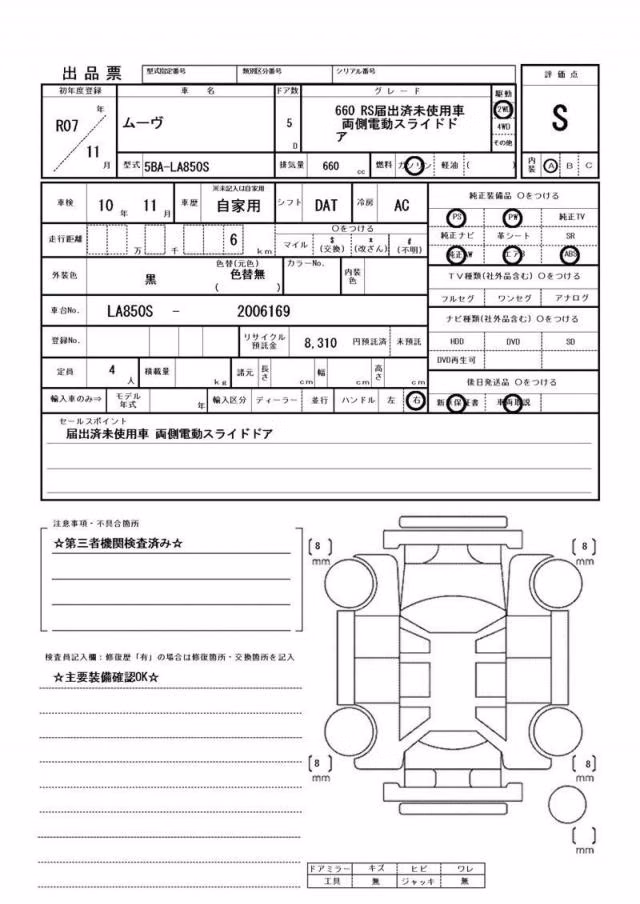 出品票
型式指定番号 類別区分番号 シリアル番号
評価点
S
初年度登録 車名 ドア数 グレード 駆動
R07 年 11 月
ムーヴ
5 D
660 RS届出済未使用車
両側電動スライドド
ア
2WD
4WD
その他
型式 5BA-LA850S 排気量 660 cc 燃料 ガソリン 軽油 ( )
内装 A B C
車検 10 年 11 月 車歴 ※未記入は自家用 自家用 シフト DAT 冷房 AC
走行距離 万 千 6 km
○をつける
マイル $(交換) x(改ざん) #(不明)
外装色 黒 色替(元色) 色替無 ( ) カラーNo. 内装色
車台No. LA850S - 2006169
登録No. リサイクル預託金 8,310 円預託済 未預託
定員 4 人 積載量 kg 諸元 長さ cm 幅 cm 高さ cm
輸入車のみ⇒ モデル年式 年 輸入区分 ディーラー 並行 ハンドル 左 右
純正装備品 ○をつける
PS PW 純正TV
純正ナビ 革シート SR
純正AW エアB ABS
TV種類(社外品含む) ○をつける
フルセグ ワンセグ アナログ
ナビ種類(社外品含む) ○をつける
HDD DVD SD
DVD再生可
後日発送品 ○をつける
新車保証書 車両取説
セールスポイント
届出済未使用車 両側電動スライドドア
注意事項・不具合箇所
☆第三者機関検査済み☆
検査員記入欄：修復歴「有」の場合は修復箇所・交換箇所を記入
☆主要装備確認OK☆
[8] mm
[8] mm
[8] mm
[8] mm
[ ] mm
ドアミラー キズ ヒビ ワレ
工具 無 ジャッキ 無